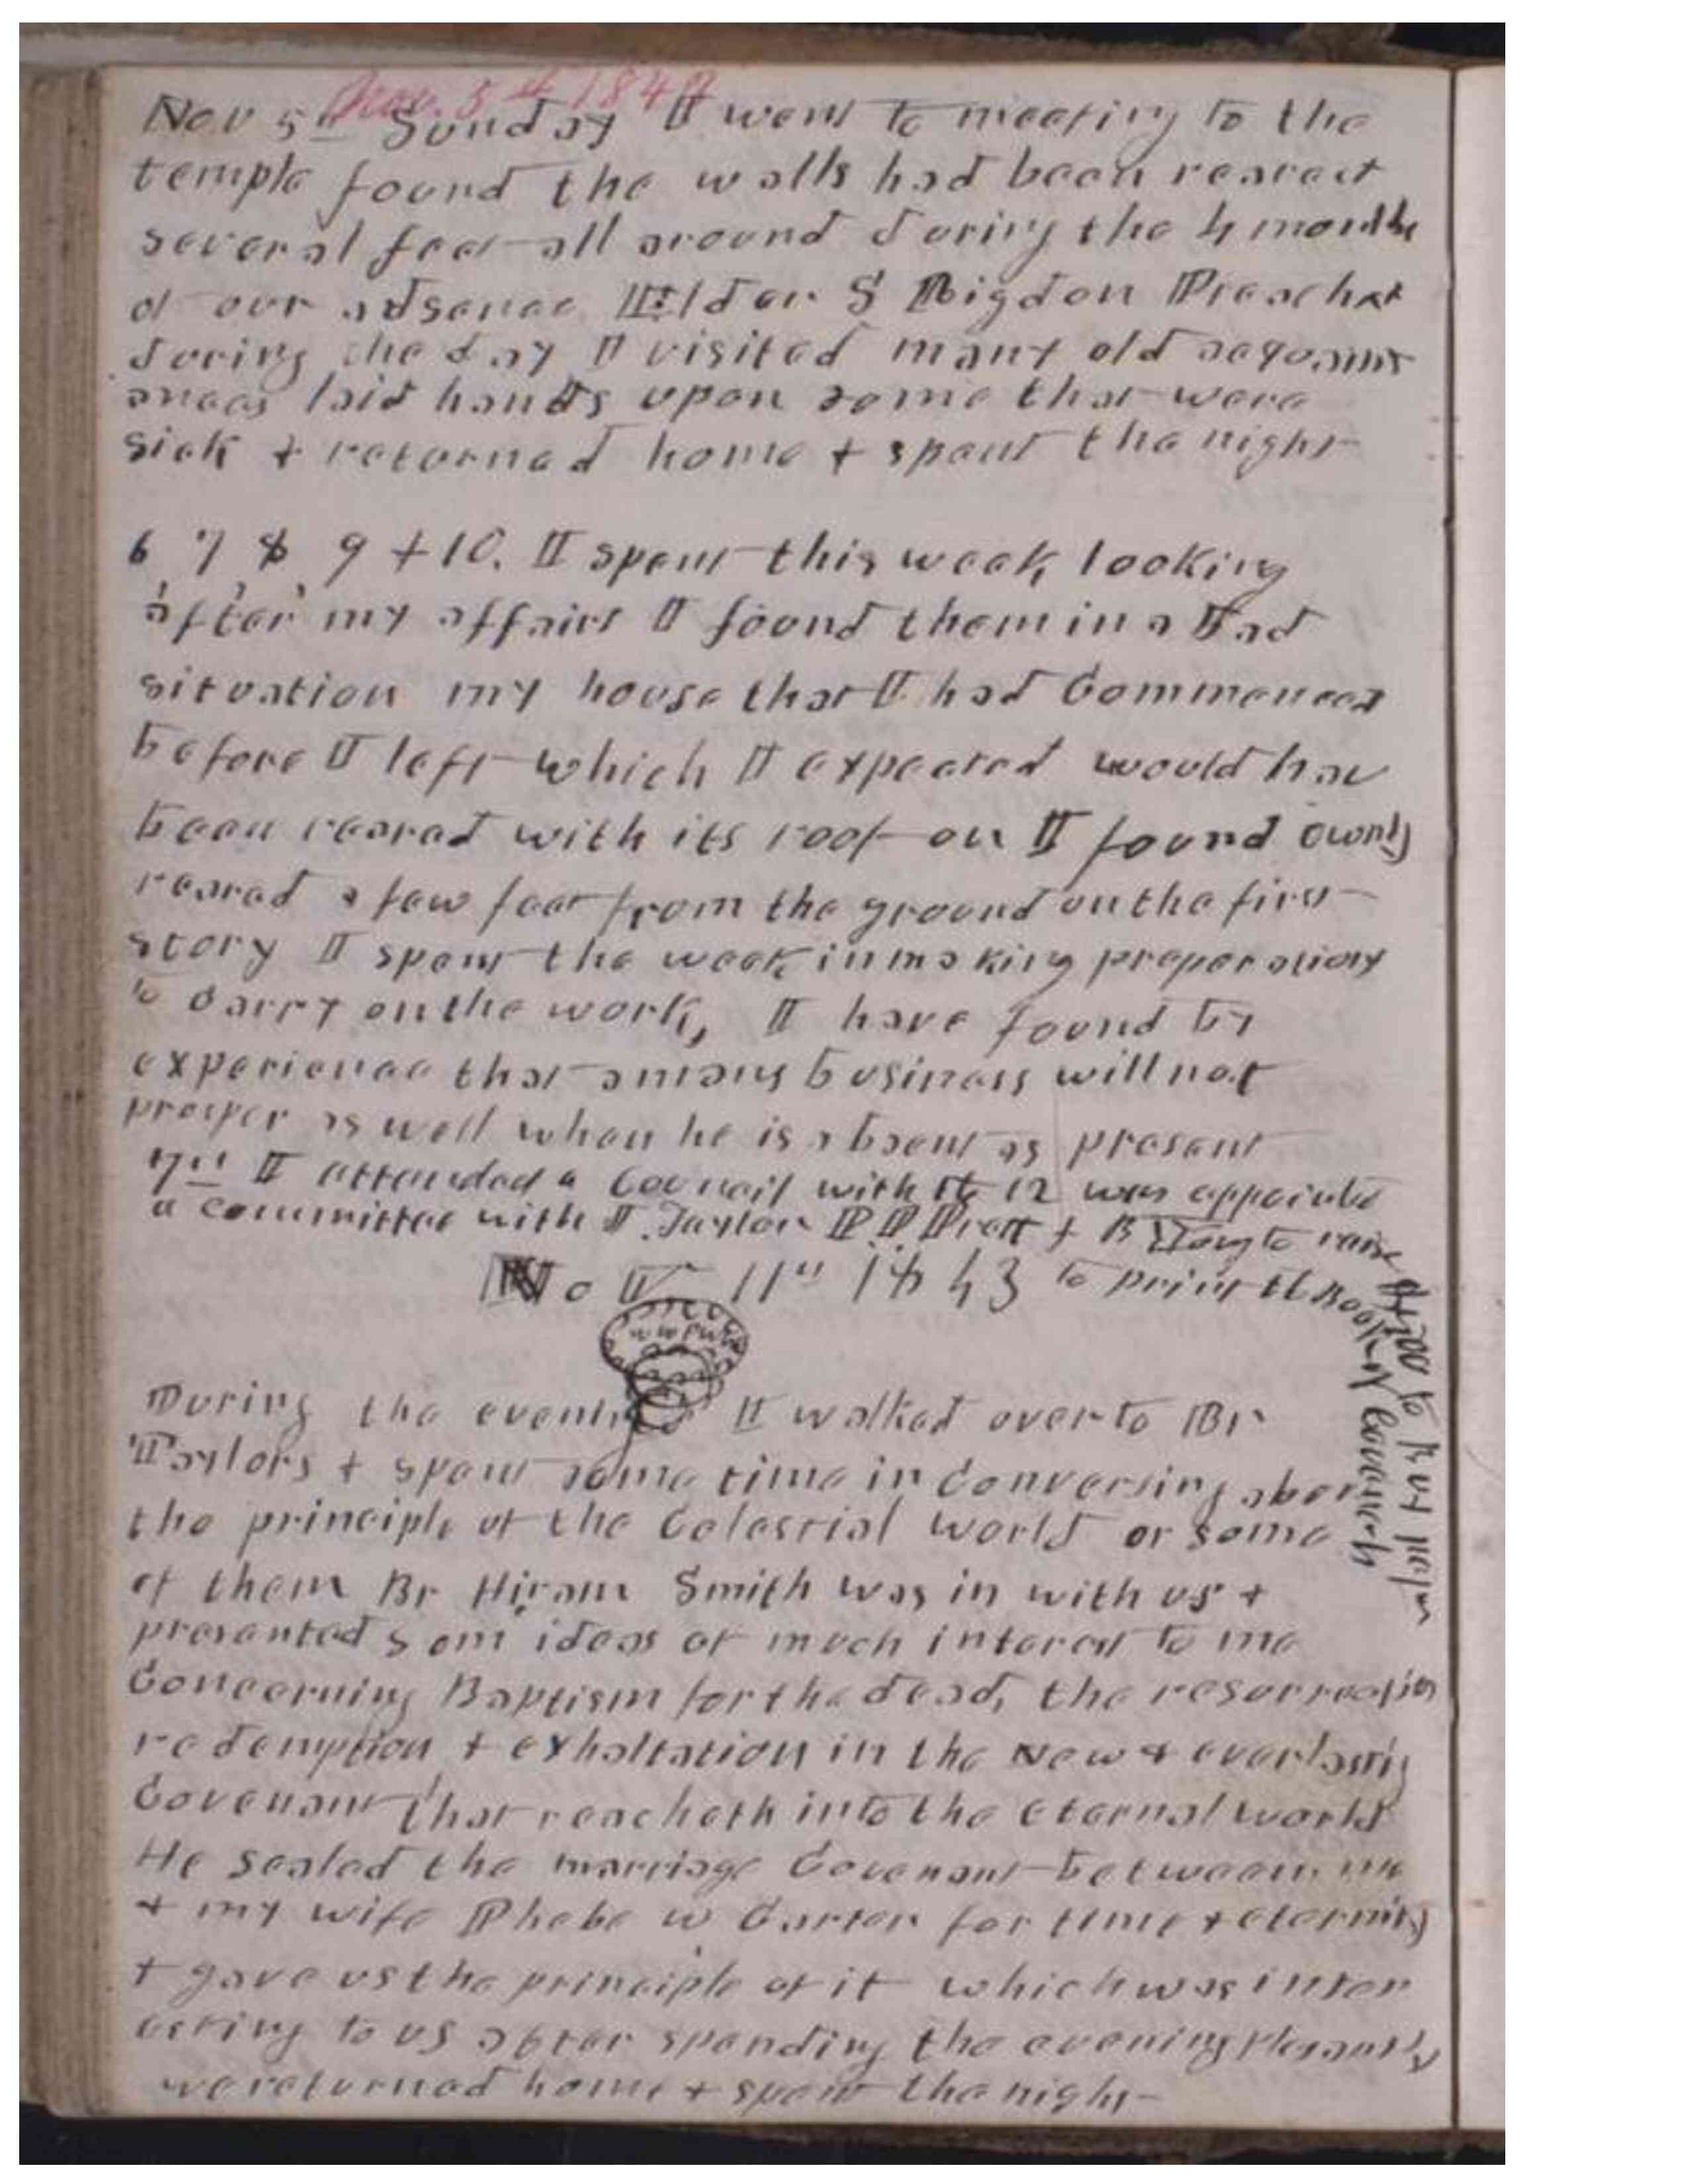 Nov. 5th 184
Nov 5th Sunday I went to meeting to the
temple found the walls had been reared
several feet all around during the 4 months
of our absence Elder S Rigdon Preached
during the day I visited many old acquaint
ances laid hands upon some that were
sick + returned home + spent the night
6, 7, 8, 9 + 10. I spent this week looking
after my affairs I found them in a Bad
situation my house that I had Commenced
before I left which I expected would hav
been reared with its roof on I found ownly
reared a few feet from the ground on the first
story I spent the week in making preperations
to Carry on the work, I have found by
experience that a mans business will not
prosper as well when he is absent as present
7th I attended a Council with the 12 was appointed
a committee with J. Taylor P. P. Pratt + B Young to raise $500 to buy paper
Nov 11th 1843 to print the Book of Covenants
W W P W
During the evening I walked over to Br
Taylors + spent some time in Conversing about
the principle of the Celestial world or some
of them Br Hiram Smith was in with us +
presented som ideas of much interest to me
Concerning Baptism for the dead, the resurrection
redemption + exhaltation in the New + everlasting
Covenant that reacheth into the eternal world
He sealed the marriage Covenant between me
+ my wife Phebe W Carter for time + eternity
+ gave us the principle of it which was inter
esting to us after spending the evening plesantly
we returned home + spent the night